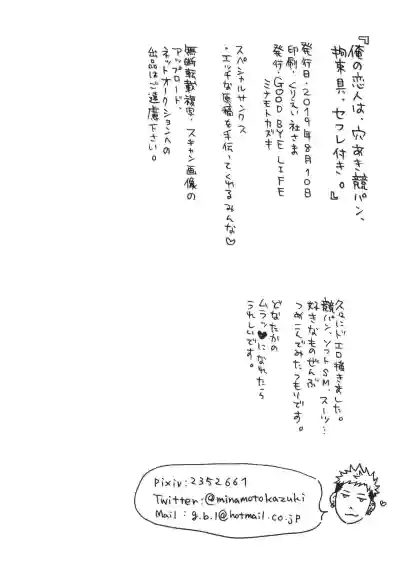 『俺の恋人は、穴あき競パン、
拘束具、セフレ付き。』
発行日・2019年8月10日
印刷・くりえい社さま
発行・GOOD BYE LIFE
ミナモトカズキ
スペシャルサンクス
・エッチな原稿を手伝ってくれるみんな♡
無断転載複写・スキャン画像の
アップロード、
ネットオークションへの
出品はご遠慮下さい。
久々にドエロ描きました。
競パン、ソフトSM、スーツ…
好きなものぜんぶ
つめこんでみたつもりです。
どなたかの
ムラッ♥になれたら
うれしいです。
Pixiv:2352661
Twitter:@minamotokazuki
Mail:g.b.l@hotmail.co.jp